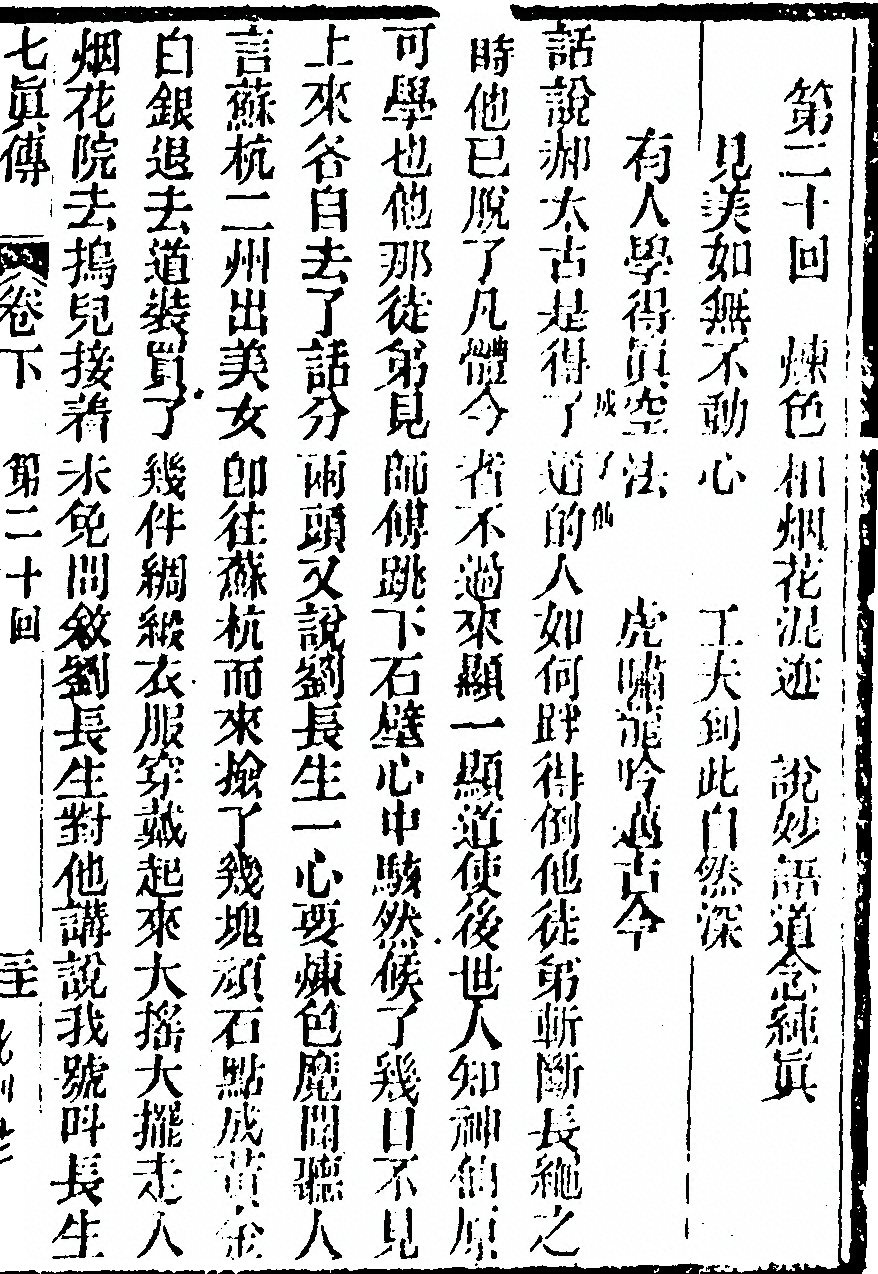 第二十回　煉色相烟花混迹　說妙語道念純眞
見美如無不動心　工夫到此自然深
有人學得眞空法　虎嘯龍吟過古今
話說郝太古是得了道的人如何跘得倒他徒弟斬斷長䋲之
成了仙
時他已脫了凡體今者不過來顯一顯道使後世人知神仙原
可學也他那徒弟見師傅跳下石壁心中駭然候了幾日不見
上來各自去了話分兩頭又說劉長生一心要煉色魔聞聽人
言蘇杭二州出美女卽往蘇杭而來撿了幾塊頑石點成黃金
白銀退去道裝買了幾件綢緞衣服穿戴起來大搖大擺走入
烟花院去搗兒接着未免問敘劉長生對他講說我號叫長生
七眞傳　卷下　第二十回